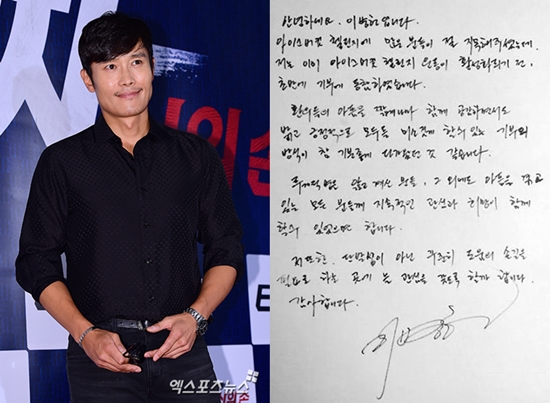 의 손
엑스포츠뉴스
안녕하세요. 이병헌입니다.
아이스버킷 챌린지에 많은 분들이 절 지목해주셨는데,
저는 이미 아이스버킷 챌린지 운동이 활성화되기 전,
초반에 기부에 동참하였습니다.
환우들의 아픔을 짧게나마 함께 공감하면서도
밝고 긍정적으로 모두들 미소짓게 할 수 있는 기부의
방식이 참 기분좋게 다가왔던 것 같습니다.
루게릭병을 앓고 계신 분들, 그 외에도 아픔을 갖고
있는 모든 분들께 지속적인 관심과 희망이 함께
할 수 있었으면 합니다.
저 또한, 단발성이 아닌 꾸준히 도움의 손길을
필요로 하는 곳에 늘 관심을 갖도록 할까 합니다.
감사합니다.